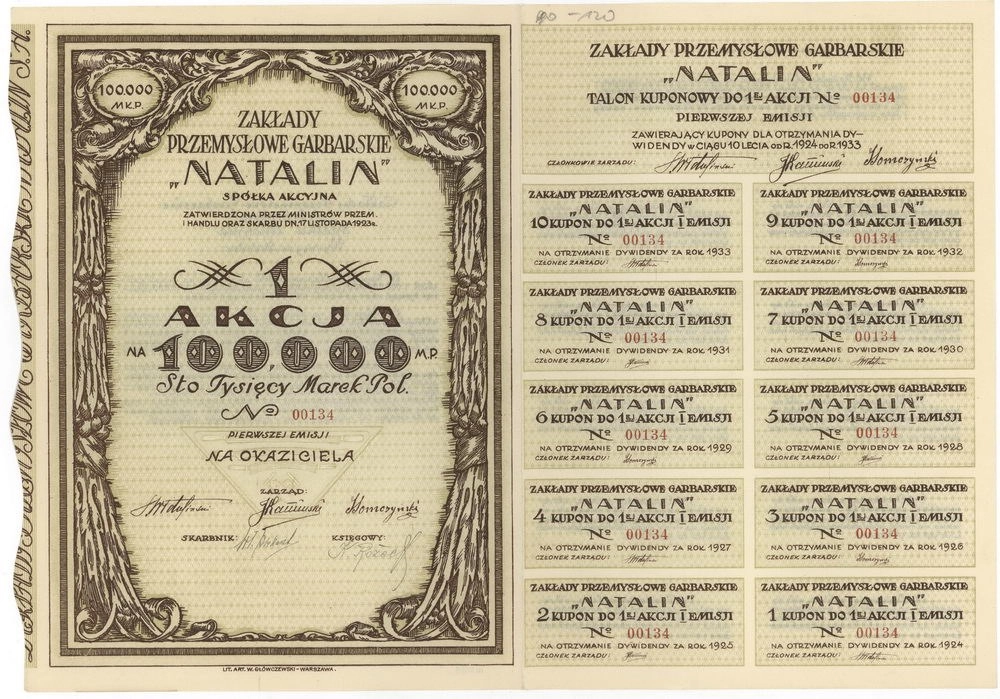 90 - 120
100.000
MK.P.
100.000
MK.P.
ZAKŁADY
PRZEMYSŁOWE GARBARSKIE
„NATALIN"
SPÓŁKA AKCYJNA
ZATWIERDZONA PRZEZ MINISTRÓW PRZEM.
I HANDLU ORAZ SKARBU DN. 17 LISTOPADA 1923R.
1
AKCJA
NA 100,000 M.P.
Sto Tysięcy Marek Pol.
No 00134
PIERWSZEJ EMISJI
NA OKAZICIELA
ZARZĄD:
SKARBNIK:
KSIĘGOWY:
LIT. ART. W. GŁÓWCZEWSKI - WARSZAWA.
ZAKŁADY PRZEMYSŁOWE GARBARSKIE
„NATALIN"
TALON KUPONOWY DO 1EJ AKCJI No 00134
PIERWSZEJ EMISJI
ZAWIERAJĄCY KUPONY DLA OTRZYMANIA DY-
WIDENDY W CIĄGU 10 LECIA OD R. 1924 DO R. 1933
CZŁONKOWIE ZARZĄDU:
ZAKŁADY PRZEMYSŁOWE GARBARSKIE
„NATALIN"
10 KUPON DO 1EJ AKCJI I EMISJI
No 00134
NA OTRZYMANIE DYWIDENDY ZA ROK 1933
CZŁONEK ZARZĄDU:
ZAKŁADY PRZEMYSŁOWE GARBARSKIE
„NATALIN"
9 KUPON DO 1EJ AKCJI I EMISJI
No 00134
NA OTRZYMANIE DYWIDENDY ZA ROK 1932
CZŁONEK ZARZĄDU:
ZAKŁADY PRZEMYSŁOWE GARBARSKIE
„NATALIN"
8 KUPON DO 1EJ AKCJI I EMISJI
No 00134
NA OTRZYMANIE DYWIDENDY ZA ROK 1931
CZŁONEK ZARZĄDU:
ZAKŁADY PRZEMYSŁOWE GARBARSKIE
„NATALIN"
7 KUPON DO 1EJ AKCJI I EMISJI
No 00134
NA OTRZYMANIE DYWIDENDY ZA ROK 1930
CZŁONEK ZARZĄDU:
ZAKŁADY PRZEMYSŁOWE GARBARSKIE
„NATALIN"
6 KUPON DO 1EJ AKCJI I EMISJI
No 00134
NA OTRZYMANIE DYWIDENDY ZA ROK 1929
CZŁONEK ZARZĄDU:
ZAKŁADY PRZEMYSŁOWE GARBARSKIE
„NATALIN"
5 KUPON DO 1EJ AKCJI I EMISJI
No 00134
NA OTRZYMANIE DYWIDENDY ZA ROK 1928
CZŁONEK ZARZĄDU:
ZAKŁADY PRZEMYSŁOWE GARBARSKIE
„NATALIN"
4 KUPON DO 1EJ AKCJI I EMISJI
No 00134
NA OTRZYMANIE DYWIDENDY ZA ROK 1927
CZŁONEK ZARZĄDU:
ZAKŁADY PRZEMYSŁOWE GARBARSKIE
„NATALIN"
3 KUPON DO 1EJ AKCJI I EMISJI
No 00134
NA OTRZYMANIE DYWIDENDY ZA ROK 1926
CZŁONEK ZARZĄDU:
ZAKŁADY PRZEMYSŁOWE GARBARSKIE
„NATALIN"
2 KUPON DO 1EJ AKCJI I EMISJI
No 00134
NA OTRZYMANIE DYWIDENDY ZA ROK 1925
CZŁONEK ZARZĄDU:
ZAKŁADY PRZEMYSŁOWE GARBARSKIE
„NATALIN"
1 KUPON DO 1EJ AKCJI I EMISJI
No 00134
NA OTRZYMANIE DYWIDENDY ZA ROK 1924
CZŁONEK ZARZĄDU: